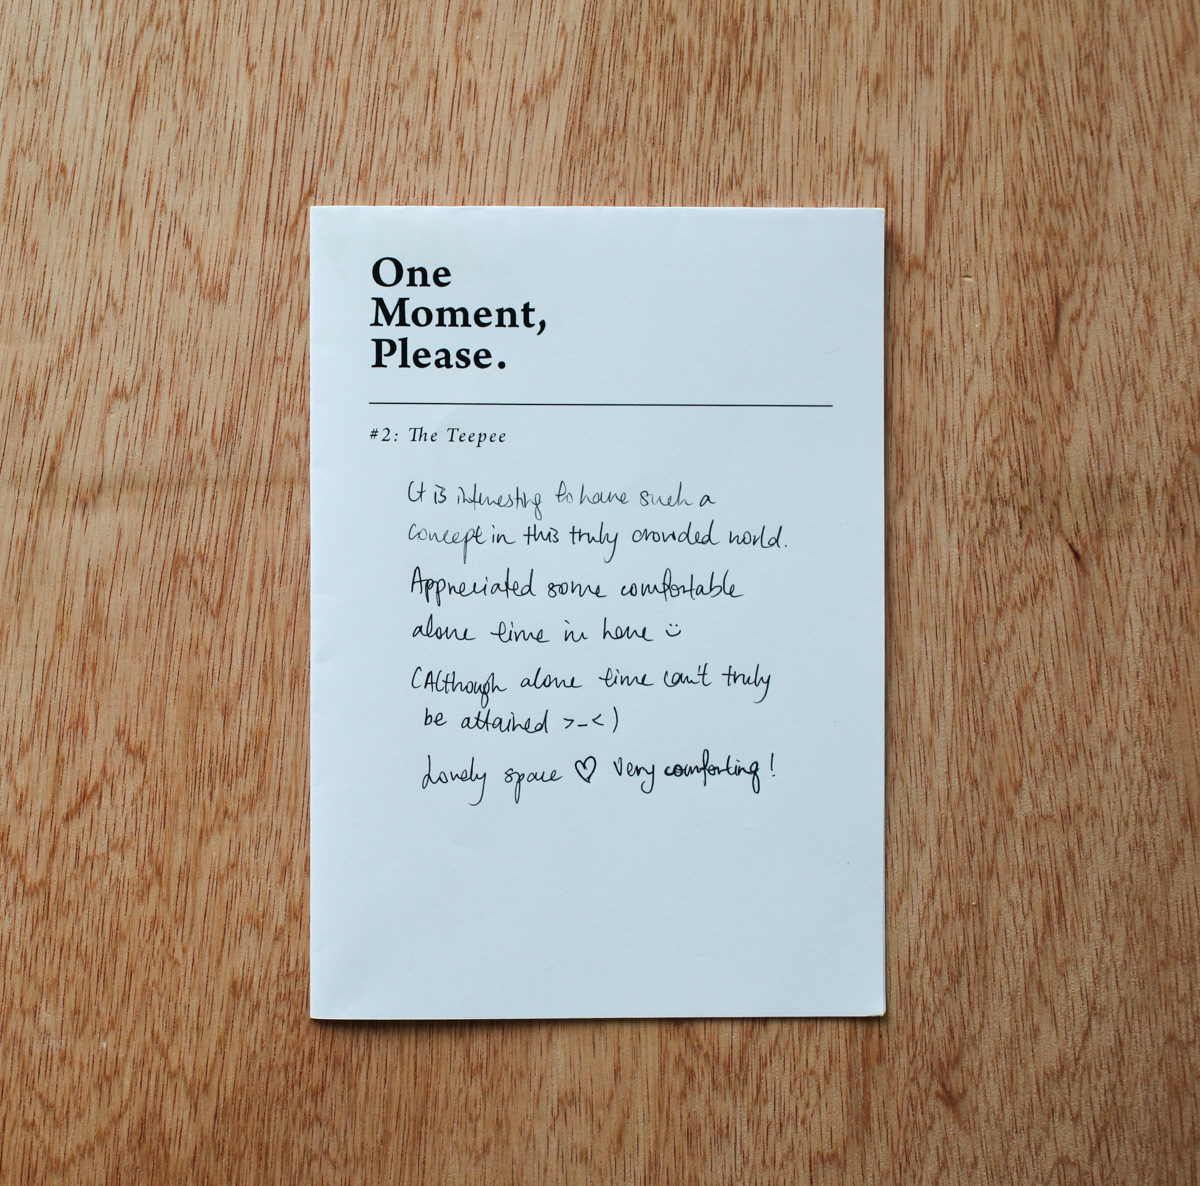 One
Moment,
Please.
#2: The Teepee
It is interesting to have such a
concept in this truly crowded world.
Appreciated some comfortable
alone time in here ü
(Although alone time can't truly
be attained >-<)
Lovely space ♡ Very comforting!